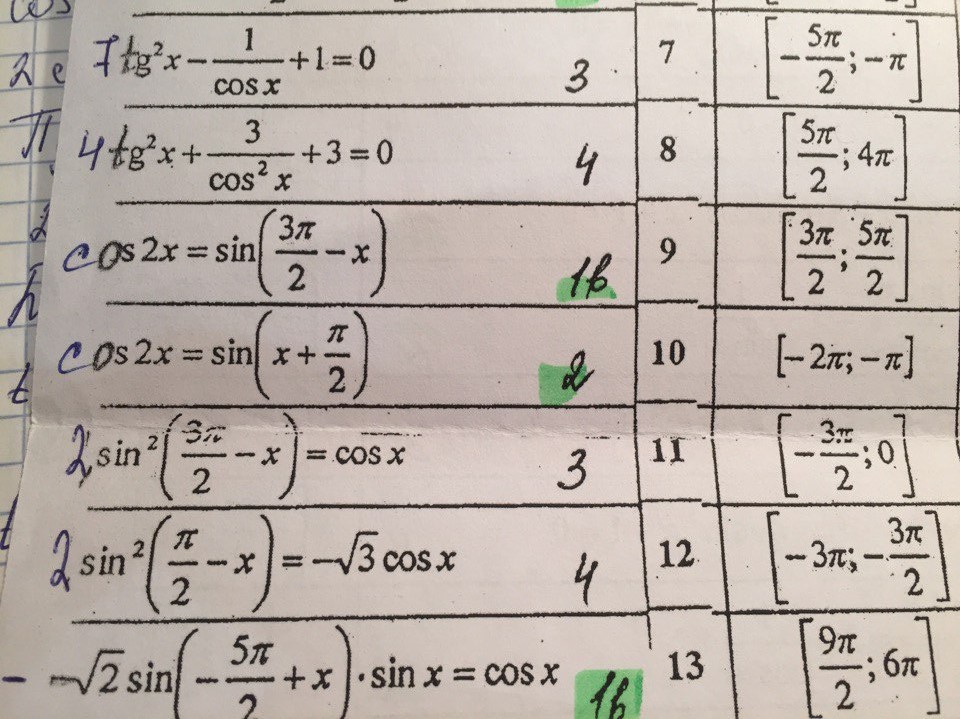 7 tg²x − 1/cos x + 1 = 0 3 7 [−5π/2; −π]
4 tg²x + 3/cos² x + 3 = 0 4 8 [5π/2; 4π]
cos 2x = sin(3π/2 − x) 1б 9 [3π/2; 5π/2]
cos 2x = sin(x + π/2) 2 10 [−2π; −π]
2 sin²(3π/2 − x) = cos x 3 11 [−3π/2; 0]
2 sin²(π/2 − x) = −√3 cos x 4 12 [−3π; −3π/2]
− −√2 sin(−5π/2 + x) · sin x = cos x 1б 13 [9π/2; 6π]